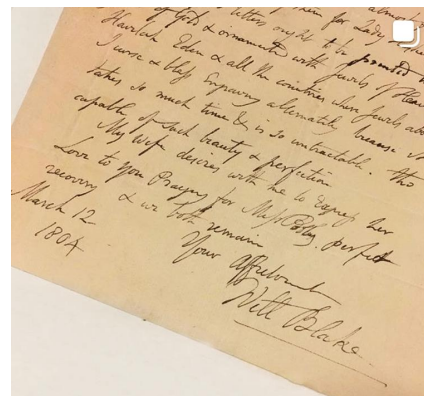 of Gods & ornamented with Jewels of Heaven
Havilah Eden & all the countries where Jewels abo
I curse & bless Engraving alternately because it
takes so much time & is so untractable. tho
capable of such beauty & perfection
My wife desires with me to Express her
Love to You Prayers for Miss perfect
recovery & we both
remain
Your Affectionate
Will Blake
March 12
1804